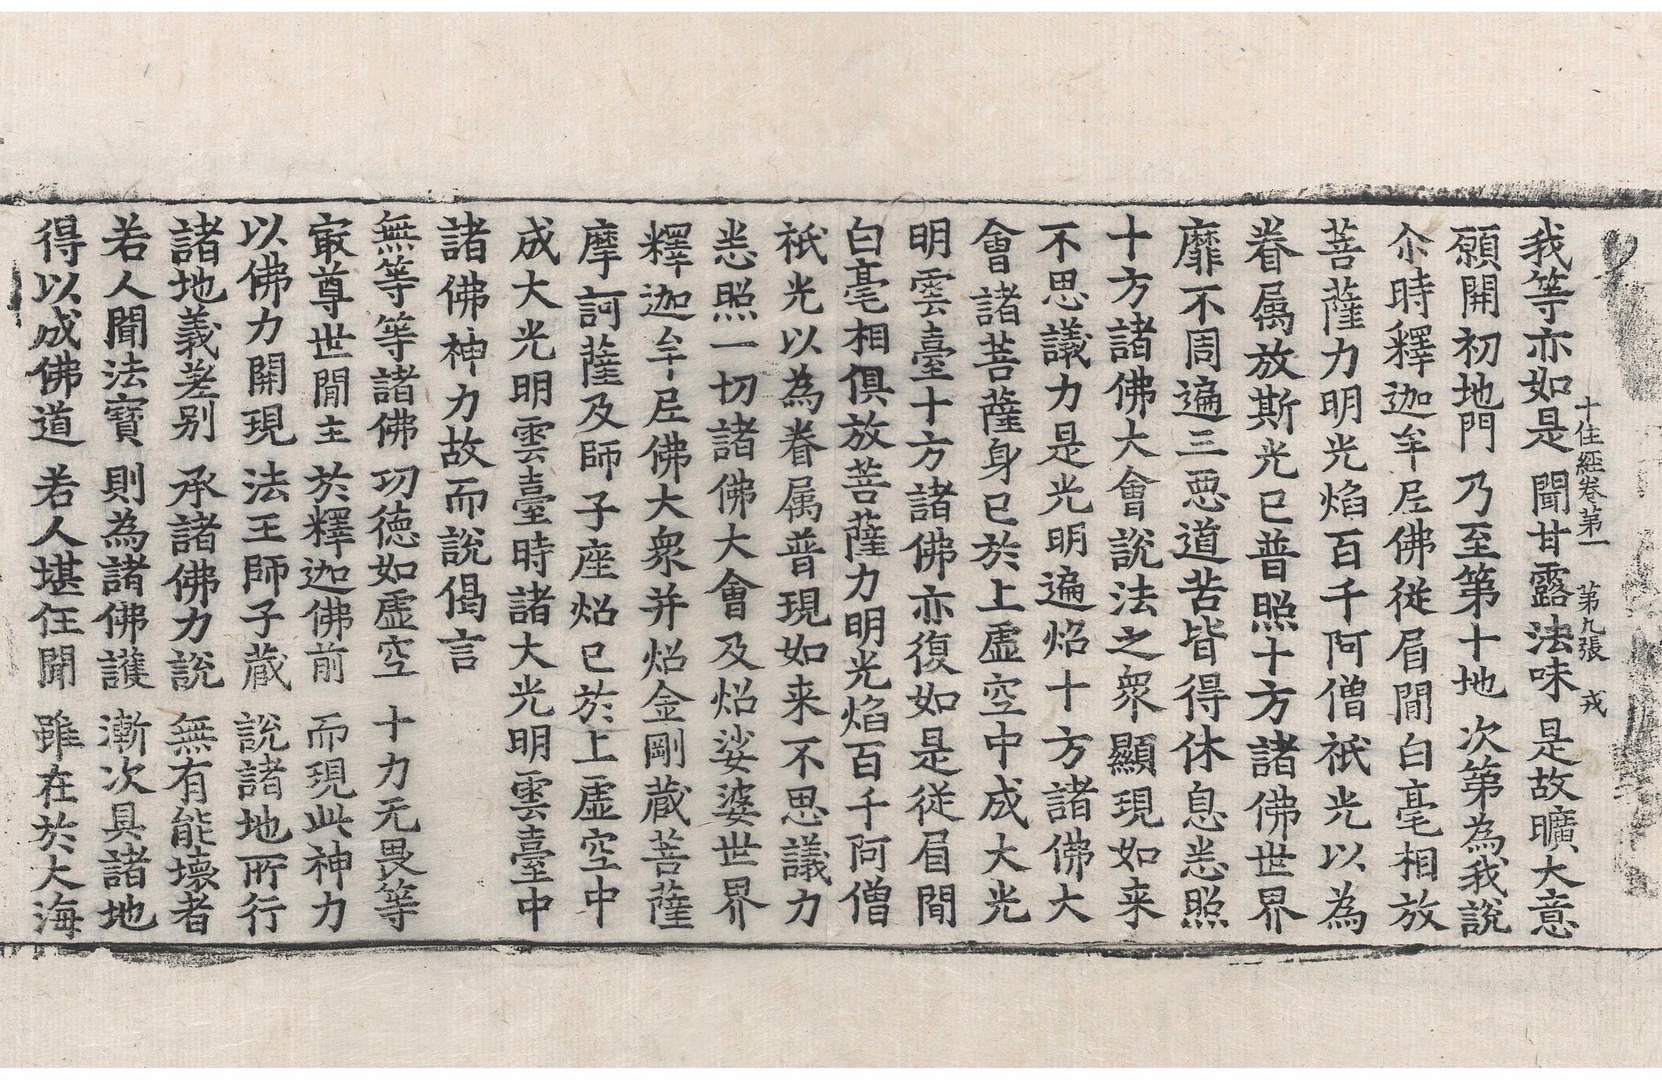 十住經卷第一 第九張 戎
我等亦如是 聞甘露法味 是故曠大意
願開初地門 乃至第十地 次第為我說
尒時釋迦牟尼佛從眉間白毫相放
菩薩力明光焰百千阿僧祇光以為
眷属放斯光已普照十方諸佛世界
靡不周遍三惡道苦皆得休息悉照
十方諸佛大會說法之衆顯現如来
不思議力是光明遍焰十方諸佛大
會諸菩薩身已於上虛空中成大光
明雲臺十方諸佛亦復如是從眉間
白毫相俱放菩薩力明光焰百千阿僧
祇光以為眷属普現如来不思議力
悉照一切諸佛大會及炤娑婆世界
釋迦牟尼佛大衆并炤金剛蔵菩薩
摩訶薩及師子座炤已於上虛空中
成大光明雲臺時諸大光明雲臺中
諸佛神力故而說偈言
無等等諸佛 功德如虛空 十力无畏等
㝡尊世間主 於釋迦佛前 而現此神力
以佛力開現 法王師子蔵 說諸地所行
諸地義差別 承諸佛力說 無有能壞者
若人聞法寶 則為諸佛護 漸次具諸地
得以成佛道 若人堪任聞 雖在於大海